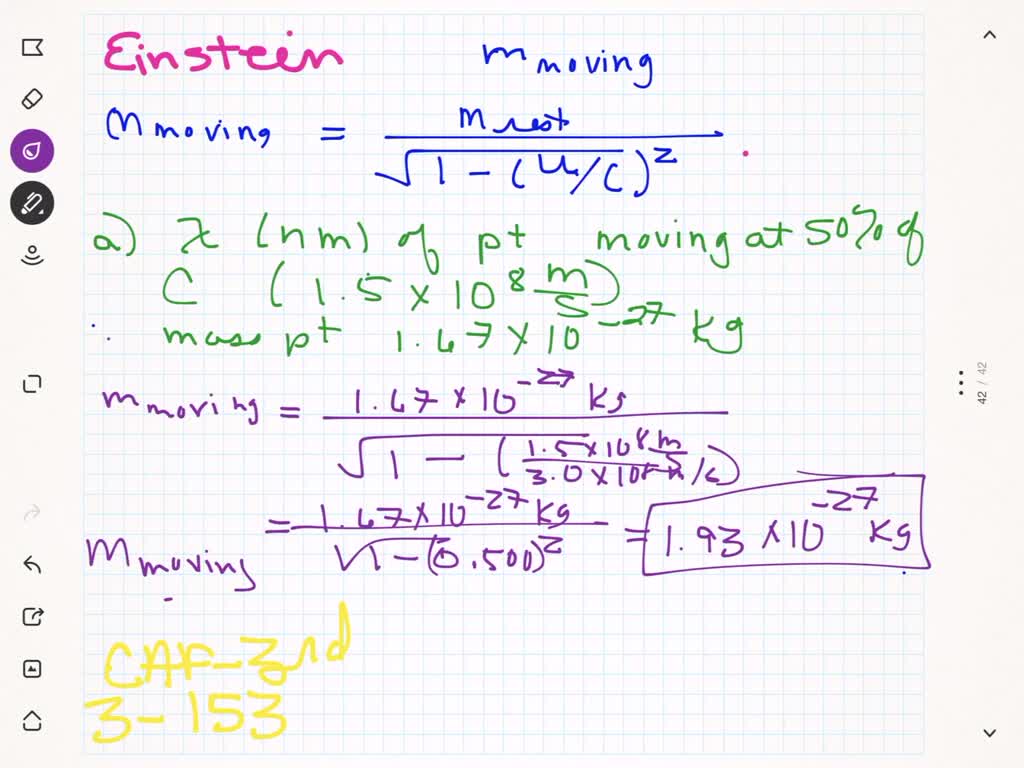 Einstein m moving
m moving = m rest / √1 - (u/c)²
a) λ (nm) of pt moving at 50% of
C (1.5 x 10⁸ m/s)
mass pt 1.67 x 10⁻²⁷ Kg
m moving = 1.67 x 10⁻²⁷ Kg / √1 - (1.5 x 10⁸ m/s / 3.0 x 10⁸ m/s)
m moving = 1.67 x 10⁻²⁷ Kg / √1 - (0.500)² = 1.93 x 10⁻²⁷ Kg
CAF-2nd
3-153
42 / 42